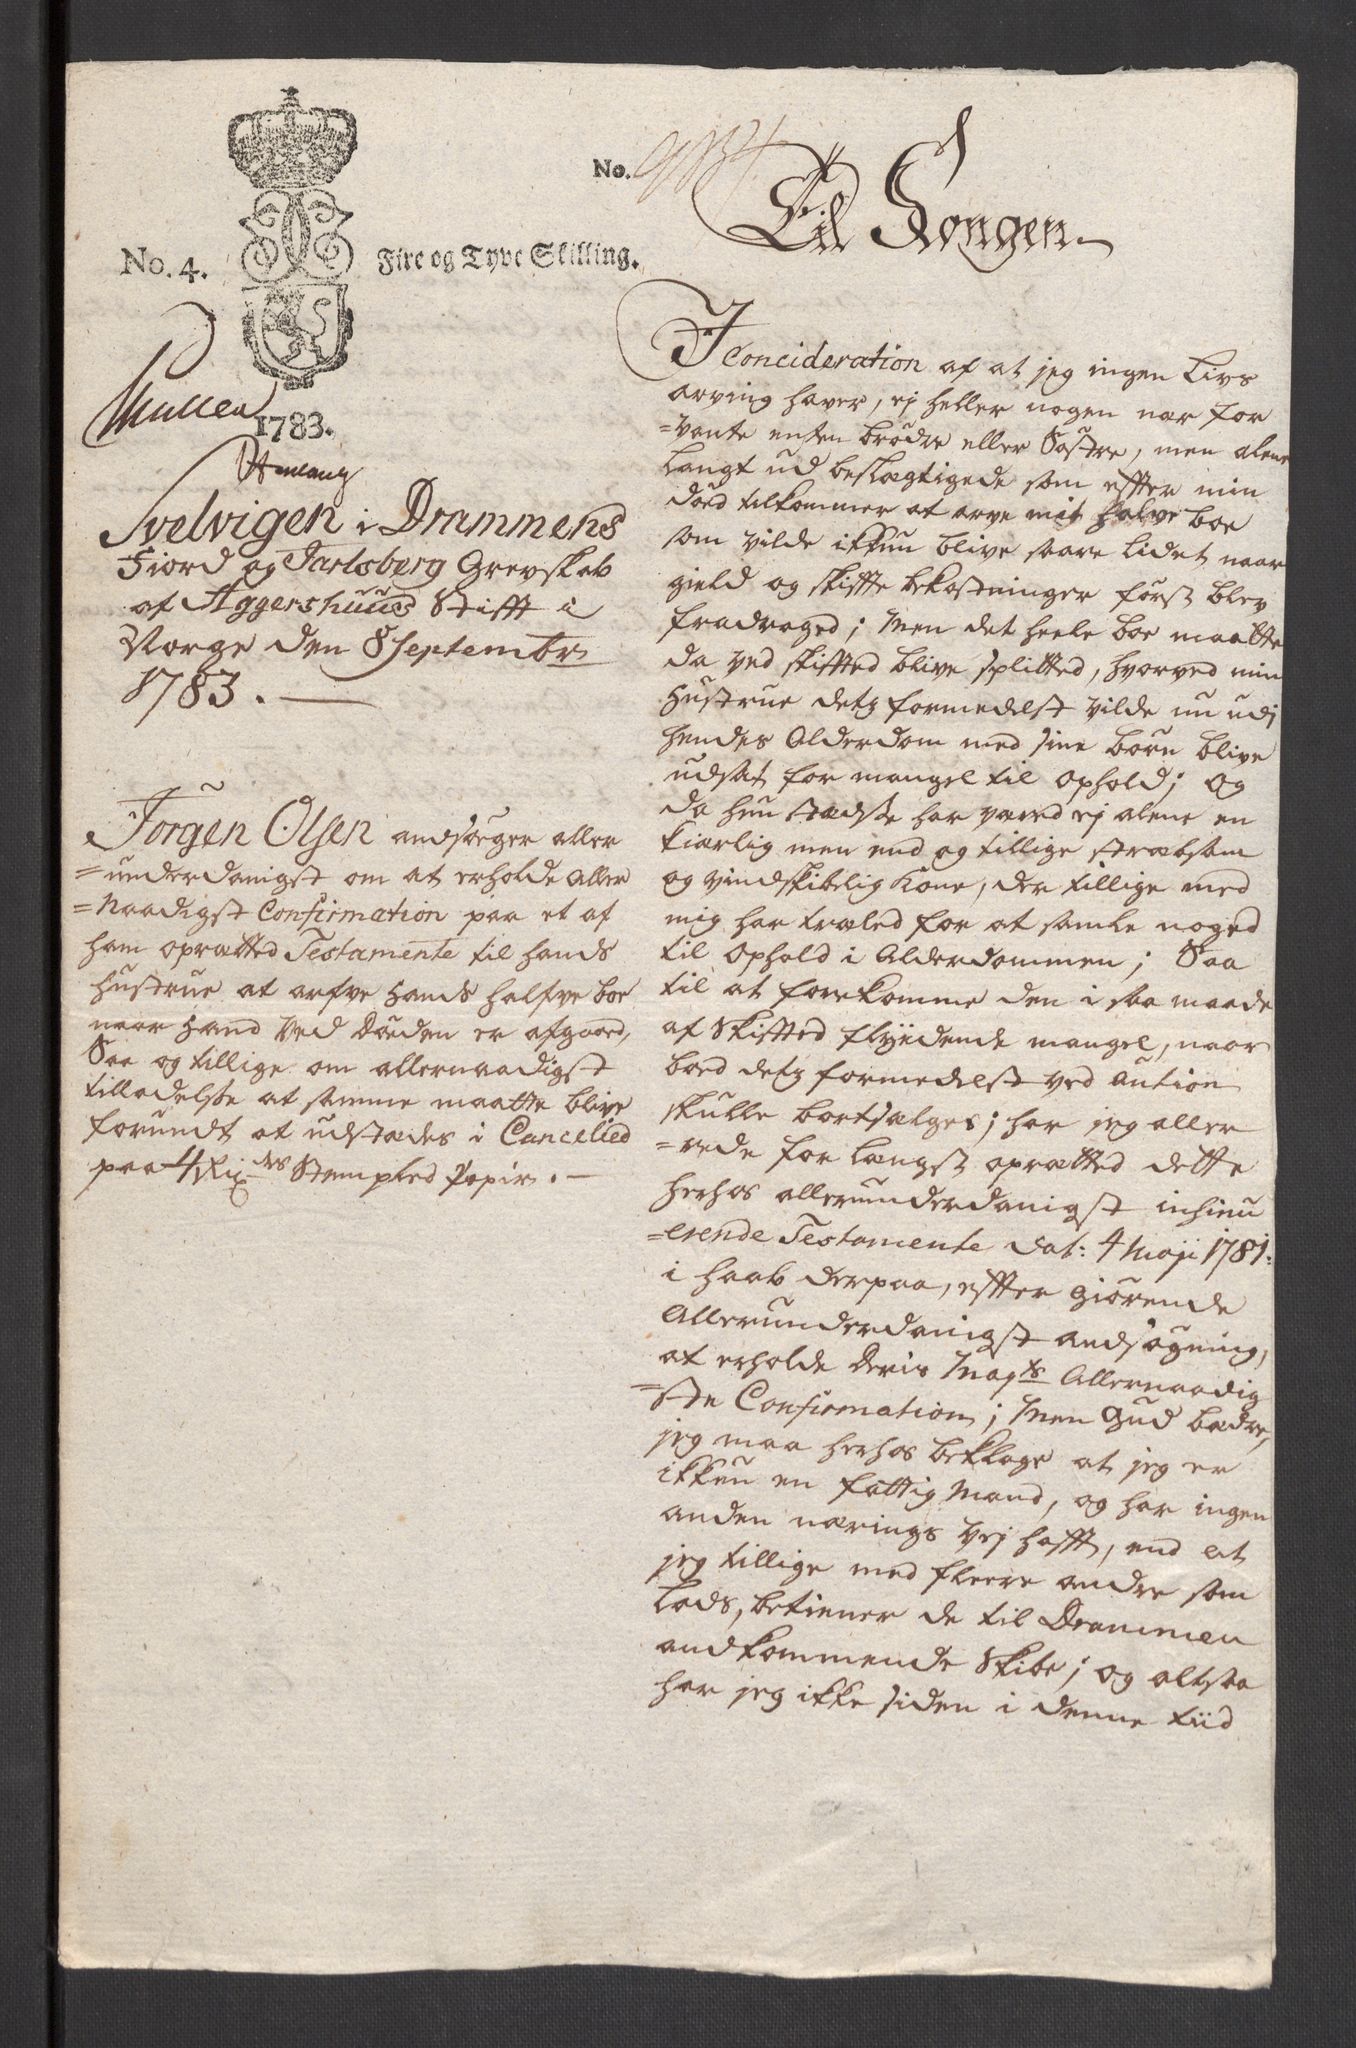 No. 4. Fire og Tyve Skilling.
1783.
Svelvigen i Drammens
Fiord og Jarlsberg Grevskab
af Aggershuus Stifft i
Norge den 8 Septembr
1783.
Jørgen Olsen andsøger aller
=underdanigst om at erholde Aller
=Naadigst Confirmation paa et af
ham oprætted Testamente til hands
Hustrue at arfve Hands halfve boe
naar Hand ved Døden er afgaaed,
Saa og tillige om allernaadigst
tilladelse at samme maatte blive
forundt at udstædes i Cancelied
paa 4 Rixdrs Stempled Papir.
No.
Til Kongen
I Concideration af at jeg ingen Livs
arving haver, ej heller nogen nær for
=vante enten brødre eller Søstre, men alene
langt ud beslægtigede som effter min
død tilkommer at arve mit halve boe
som vilde ikkun blive saare lidet naar
gield og skiffte bekostninger først blev
fradraged; Men det heele boe maatte
da ved skifted blive splitted, hvorved min
Hustrue detz formedelst vilde nu udj
hendes Alderdom med sine børn blive
udsat for mangel til Ophold; Og
da hun stædse har været ej alene en
kiærlig men end og tillige stræbsom
og vindskibelig Kone, der tillige med
mig har træled for at samle noged
til Ophold i Alderdommen; Saa
til at forekomme den i saa maade
af Skifted flyedende mangel, naar
boed detz formedelst ved Aution
skulle bortsælges; har jeg aller
=rede for længst oprætted dette
herhos allerunderdanigst inhinu
=erende Testamente dat: 4 Maji 1781:
i haab derpaa, effter giørende
Allerunderdanigst andsøgning,
at erholde Deris Mayts Allernaadig
=ste Confirmation; Men Gud bædre,
jeg maa herhos beklage at jeg er
ikkun en fattig Mand, og har ingen
anden nærings Vej hafft, end at
jeg tillige med fleere andre som
Lods, betiener de til Drammen
andkommende Skibe; og altsaa
har jeg ikke siden i denne tiid